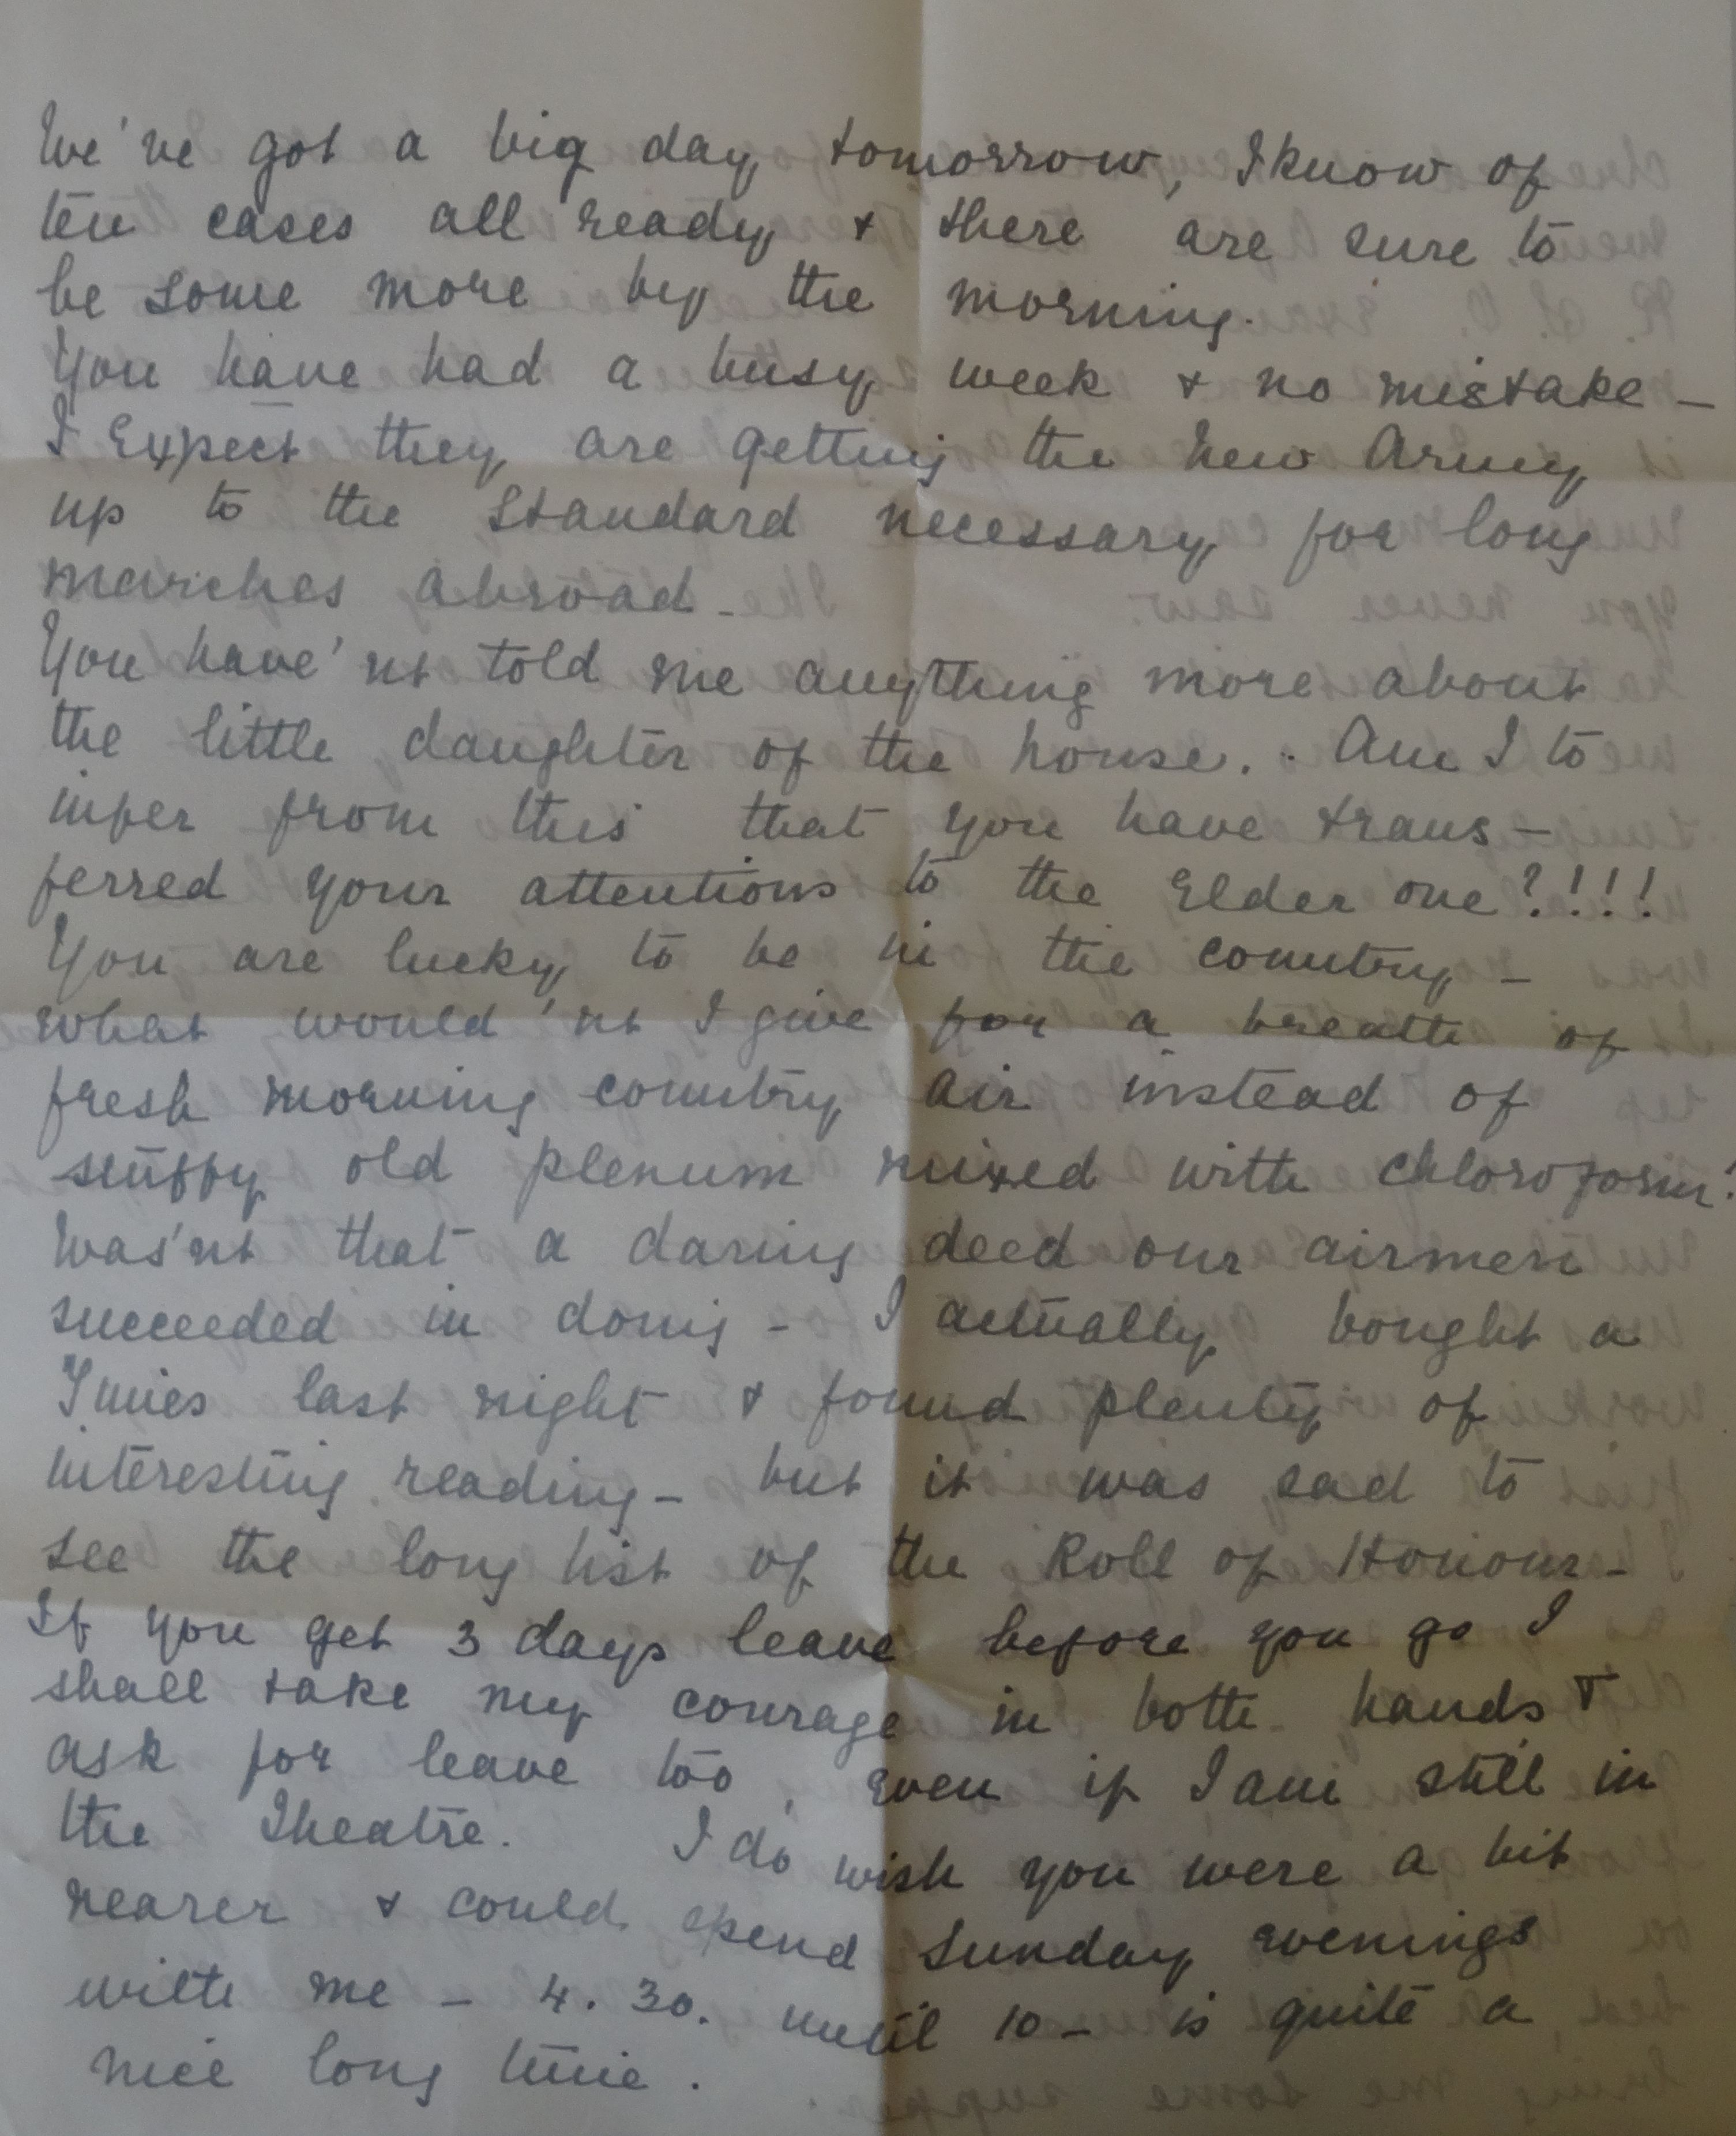 We've got a big day tomorrow, I know of
ten cases all ready & there are sure to
be some more by the morning.
You have had a busy week & no mistake –
I Expect they are getting the New Army
up to the Standard necessary for long
marches abroad –
You have'nt told me anything more about
the little daughter of the house. . Am I to
infer from this that you have trans –
ferred your attentions to the Elder one?!!!!
You are lucky to be in the country –
what would'nt I give for a breath of
fresh morning country air instead of
stuffy old plenum mixed with chloroform!
Was'nt that a daring deed our airmen
succeeded in doing – I actually bought a
Times last night & found plenty of
interesting reading – but it was sad to
see the long list of the Roll of Honour –
If you get 3 days leave before you go I
shall take my courage in both hands &
ask for leave too, even if I am still in
the Theatre. I do wish you were a bit
nearer & could spend Sunday evenings
with me – 4.30. until 10 – is quite a
nice long time.